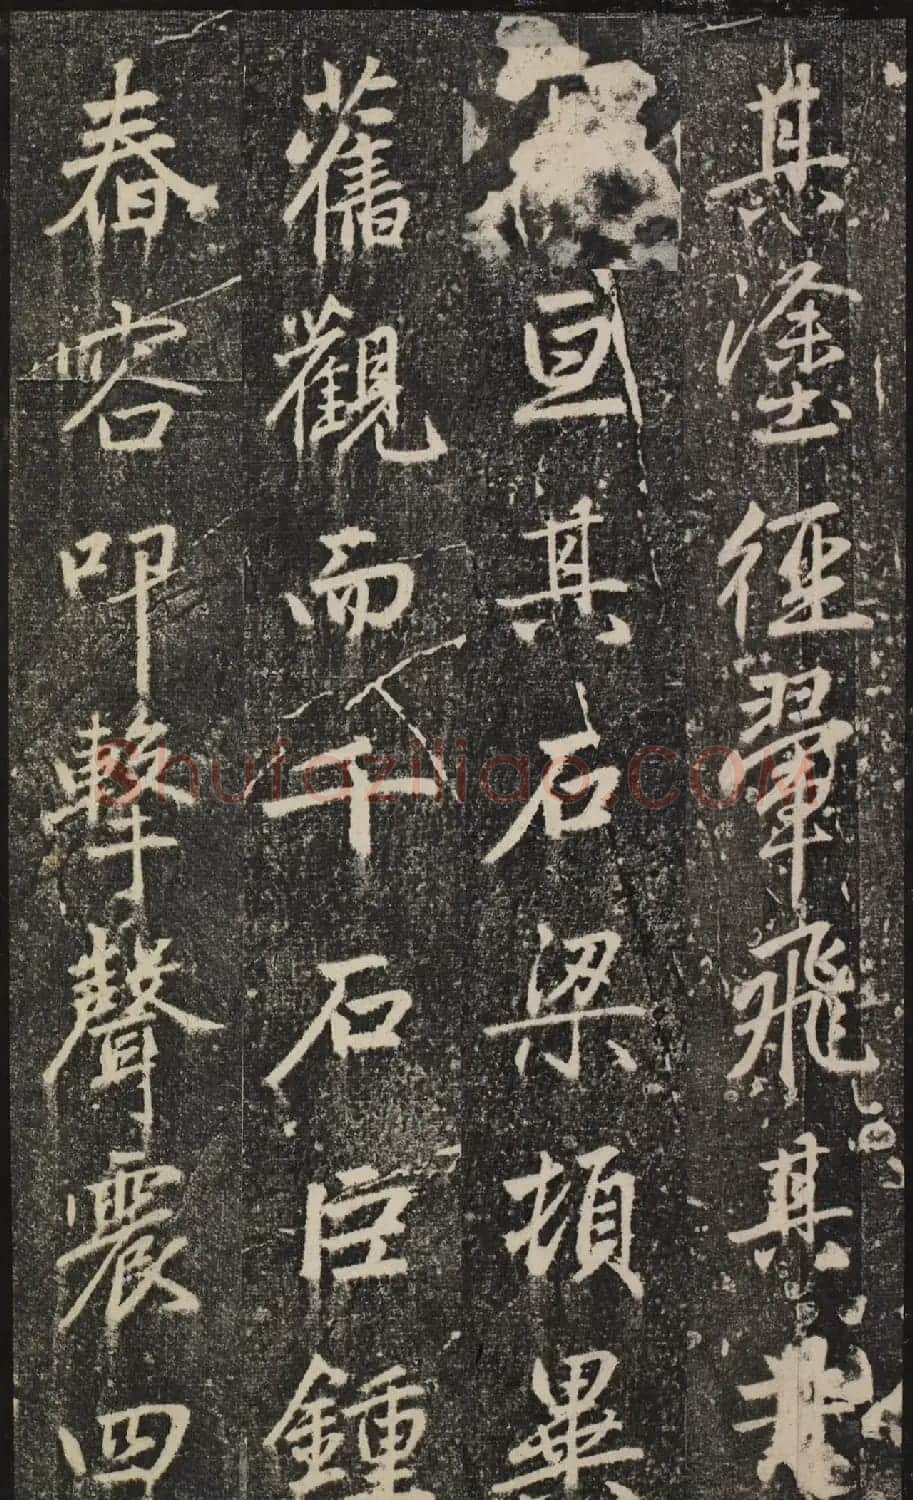 其塗徑翬飛其
亘其石梁頓畢
舊觀而千石巨鍾
春容叩擊聲震四
Shufaziliao.COM